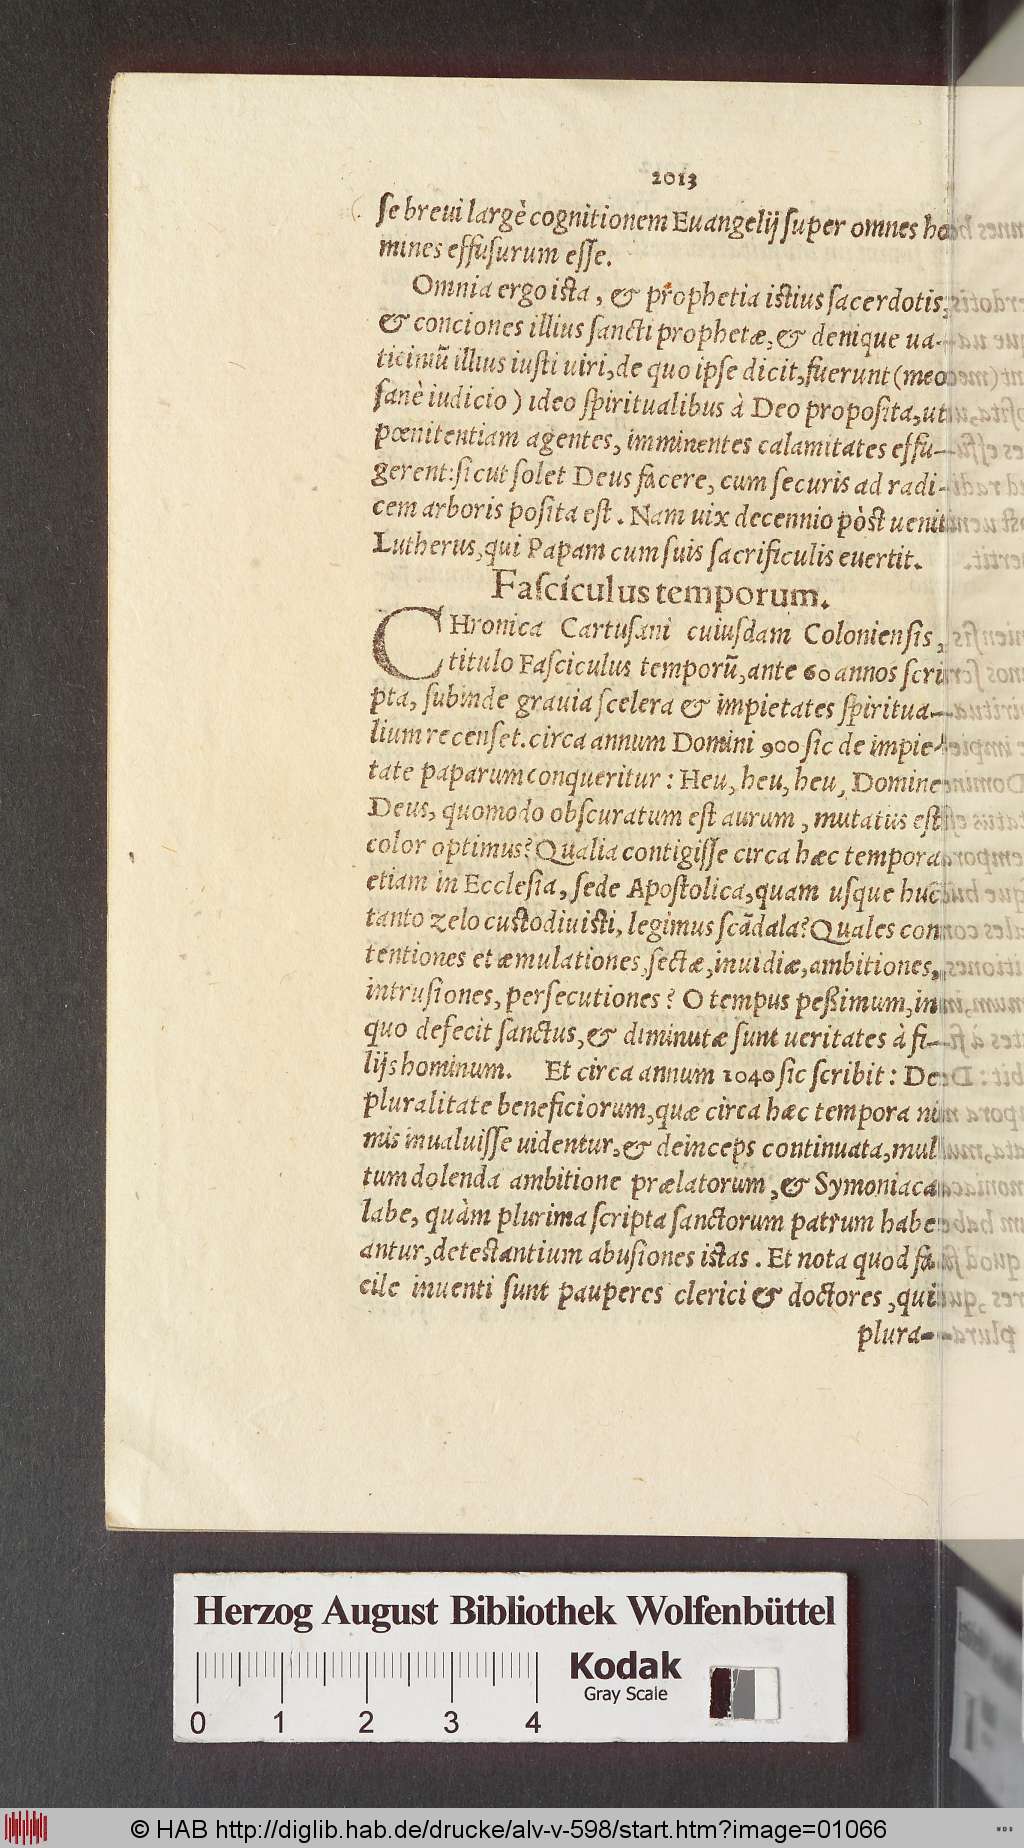 2013
se breui largè cognitionem Euangelij super omnes ho
mines effusurum esse.
Omnia ergo ista, & prophetia istius sacerdotis,
& conciones illius sancti prophetæ, & denique ua-
ticiniũ illius iusti uiri, de quo ipse dicit, fuerunt (meo
sanè iudicio) ideo spiritualibus à Deo proposita, ut
pœnitentiam agentes, imminentes calamitates effu-
gerent: sicut solet Deus facere, cum securis ad radi-
cem arboris posita est. Nam uix decennio pòst uenit
Lutherus, qui Papam cum suis sacrificulis euertit.
Fasciculus temporum.
CHronica Cartusani cuiusdam Coloniensis,
titulo Fasciculus temporũ, ante 60 annos scri
pta, subinde grauia scelera & impietates spiritua-
lium recenset. circa annum Domini 900 sic de impie-
tate paparum conqueritur: Heu, heu, heu, Domine
Deus, quomodo obscuratum est aurum, mutatus est
color optimus? Qualia contigisse circa hæc tempora
etiam in Ecclesia, sede Apostolica, quam usque huc
tanto zelo custodiuisti, legimus scãdala? Quales con
tentiones et æmulationes, sectæ, inuidiæ, ambitiones,
intrusiones, persecutiones? O tempus peßimum, in
quo defecit sanctus, & diminutæ sunt ueritates à fi-
lijs hominum. Et circa annum 1040 sic scribit: De
pluralitate beneficiorum, quæ circa hæc tempora ni
mis inualuisse uidentur, & deinceps continuata, mul
tum dolenda ambitione prælatorum, & Symoniaca
labe, quàm plurima scripta sanctorum patrum habe
antur, detestantium abusiones istas. Et nota quod fa
cile inuenti sunt pauperes clerici & doctores, qui
plura-
Herzog August Bibliothek Wolfenbüttel
Kodak
Gray Scale
0 1 2 3 4
© HAB http://diglib.hab.de/drucke/alv-v-598/start.htm?image=01066